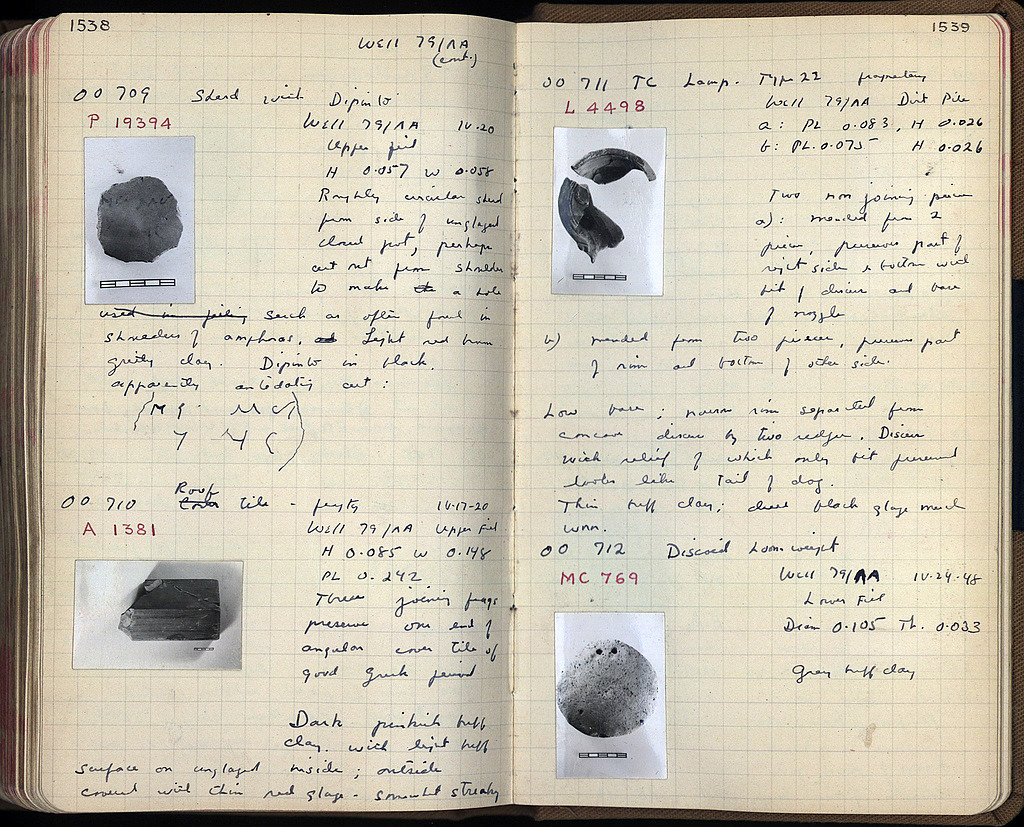 1538
Well 79/ΛA
(cont.)
OO 709 Sherd with Dipinto
P 19394 Well 79/ΛA IV-20
Upper fill
H 0.057 W 0.058
Roughly circular sherd
from side of unglazed
closed pot, perhaps
cut out from shoulder
to make a hole
used in such as often found in
shoulders of amphoras. Light red brown
gritty clay. Dipinto in black.
apparently antedating cut:
OO 710 Roof
Cover tile - frgts IV-17-20
A 1381 Well 79/ΛA Upper Fill
H 0.085 W 0.148
PL 0.242
Three joining frags
preserve one end of
angular cover tile of
good Greek period
Dark pinkish buff
clay. with light buff
surface on unglazed inside; outside
covered with thin red glaze - somewhat streaky
1539
OO 711 TC Lamp. Type 22 fragmentary
L 4498 Well 79/ΛA Dirt Pile
a: PL 0.083, H 0.026
b: PL. 0.075 H 0.026
Two non joining pieces
a): mended from 2
pieces, preserves part of
right side & bottom with
bit of discus and base
of nozzle
b) mended from two pieces, preserves part
of rim and bottom of other side.
Low base; narrow rim separated from
concave discus by two ridges. Discus
with relief of which only bit preserved
looks like tail of dog.
Thin buff clay; dull black glaze much
worn.
OO 712 Discoid Loomweight
MC 769 Well 79/ΛA IV-24-48
Lower Fill
Diam 0.105 Th. 0.033
Gray buff clay